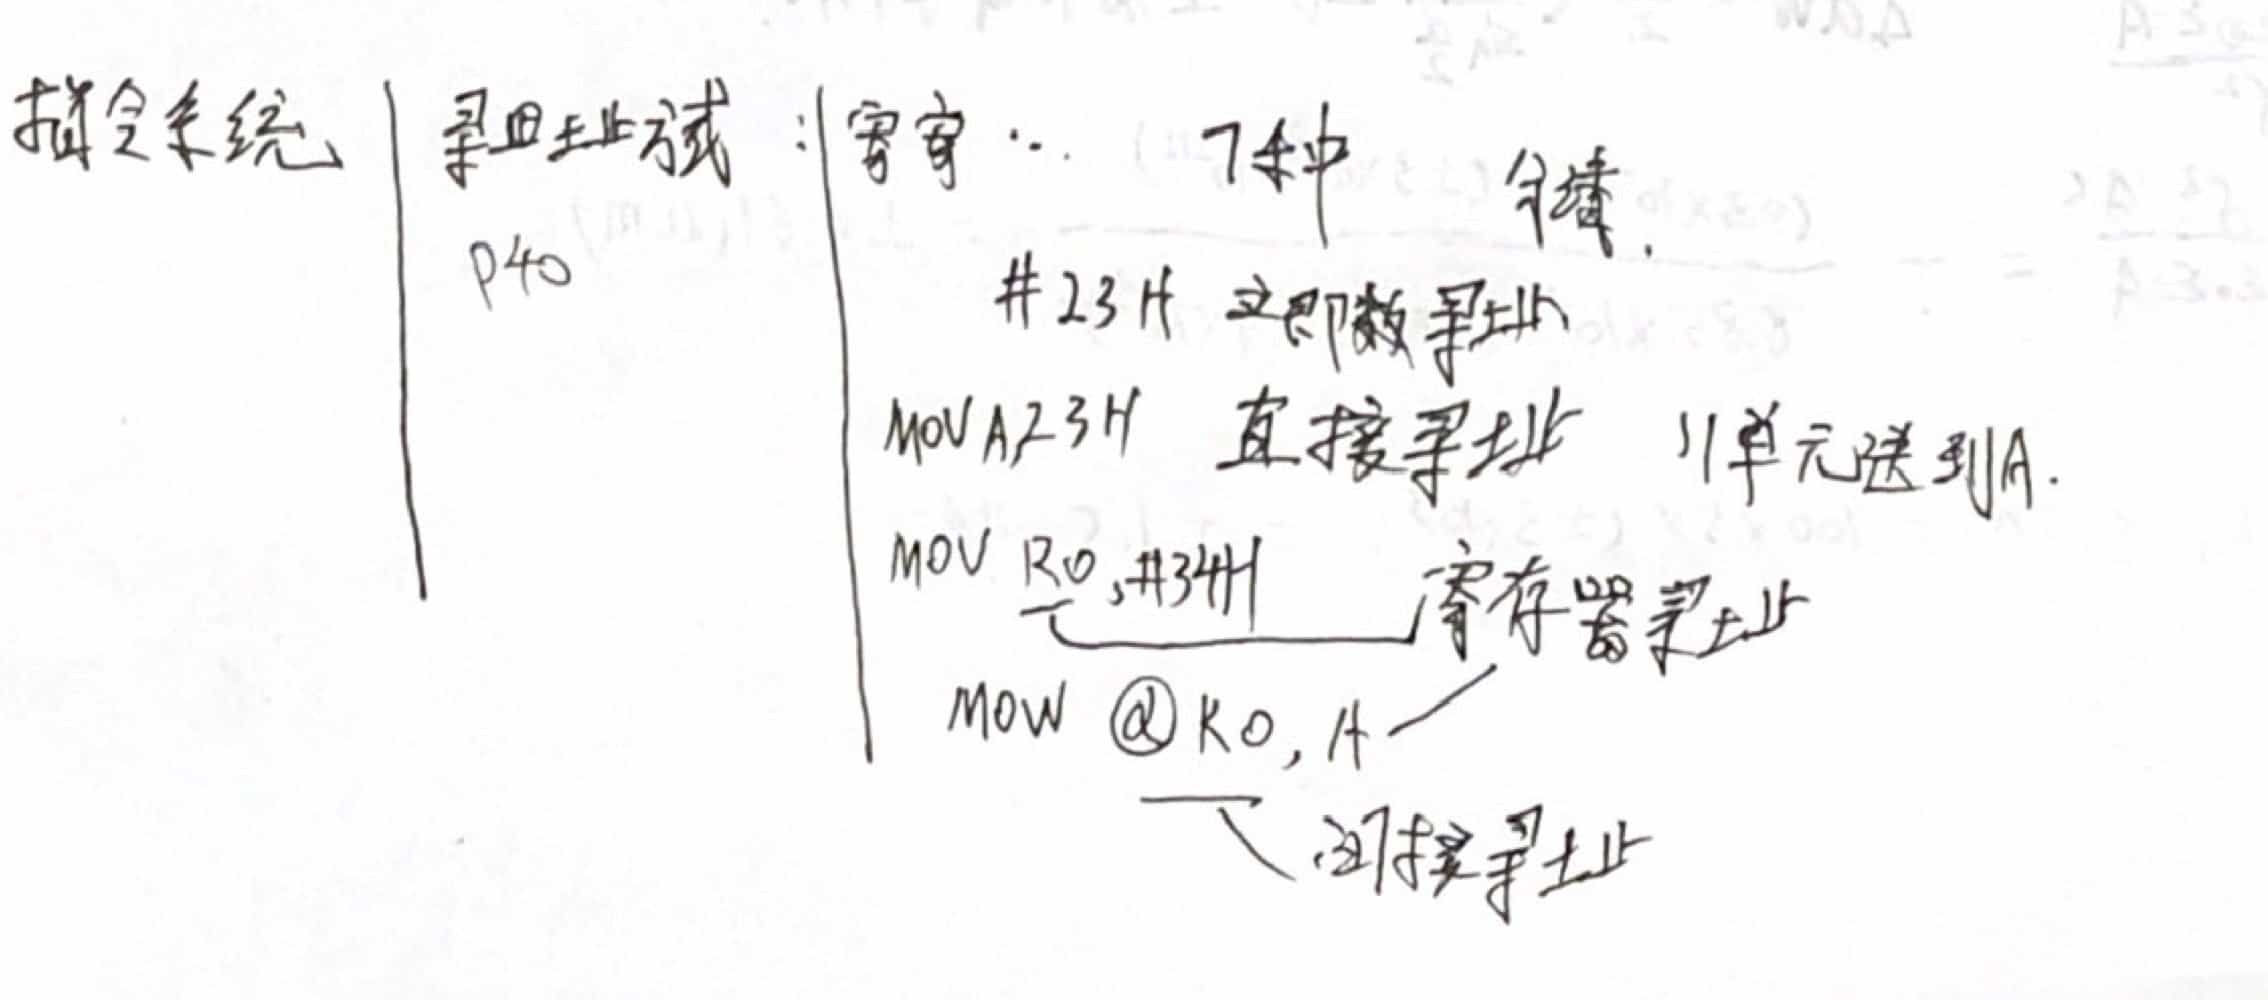 指令系统 寻址方式： 寄 寄 … 7种
P40
#23H 立即数寻址
MOV A,23H 直接寻址 11单元送到A.
MOV R0,#34H 寄存器寻址
MOV @R0, A
间接寻址